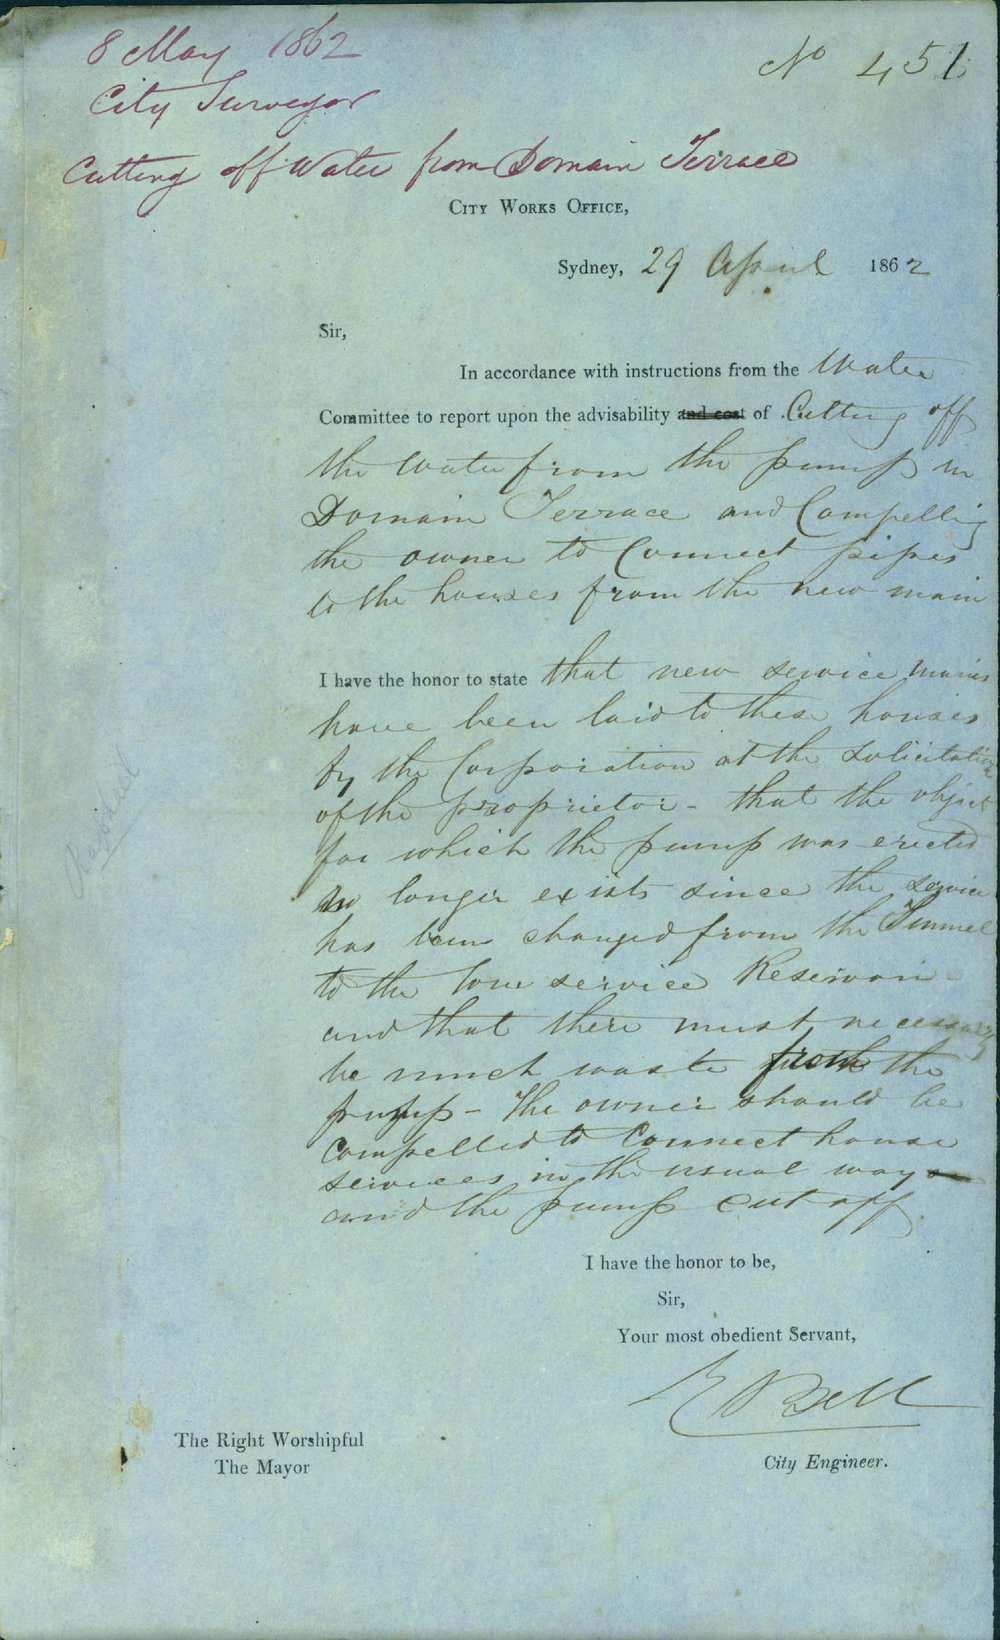 8 May 1862
No 451
City Surveyor
Cutting off Water from Domain Terrace
City Works Office,
Sydney, 29 April 1862
Sir,
In accordance with instructions from the Water
Committee to report upon the advisability and cost of Cutting off
the water from the pump in
Domain Terrace and Compelling
the owner to Connect pipes
to the houses from the new main
I have the honor to state that new service mains
have been laid to these houses
by the Corporation at the solicitation
of the proprietor - that the object
for which the pump was erected
no longer exists since the service
has been changed from the Tunnel
to the low service Reservoir
and that there must necessarily
be much waste from the
pump - The owner should be
Compelled to Connect house
services in the usual way
and the pump cut off.
I have the honor to be,
Sir,
Your most obedient Servant,
E Bell
City Engineer.
The Right Worshipful
The Mayor
Raphael